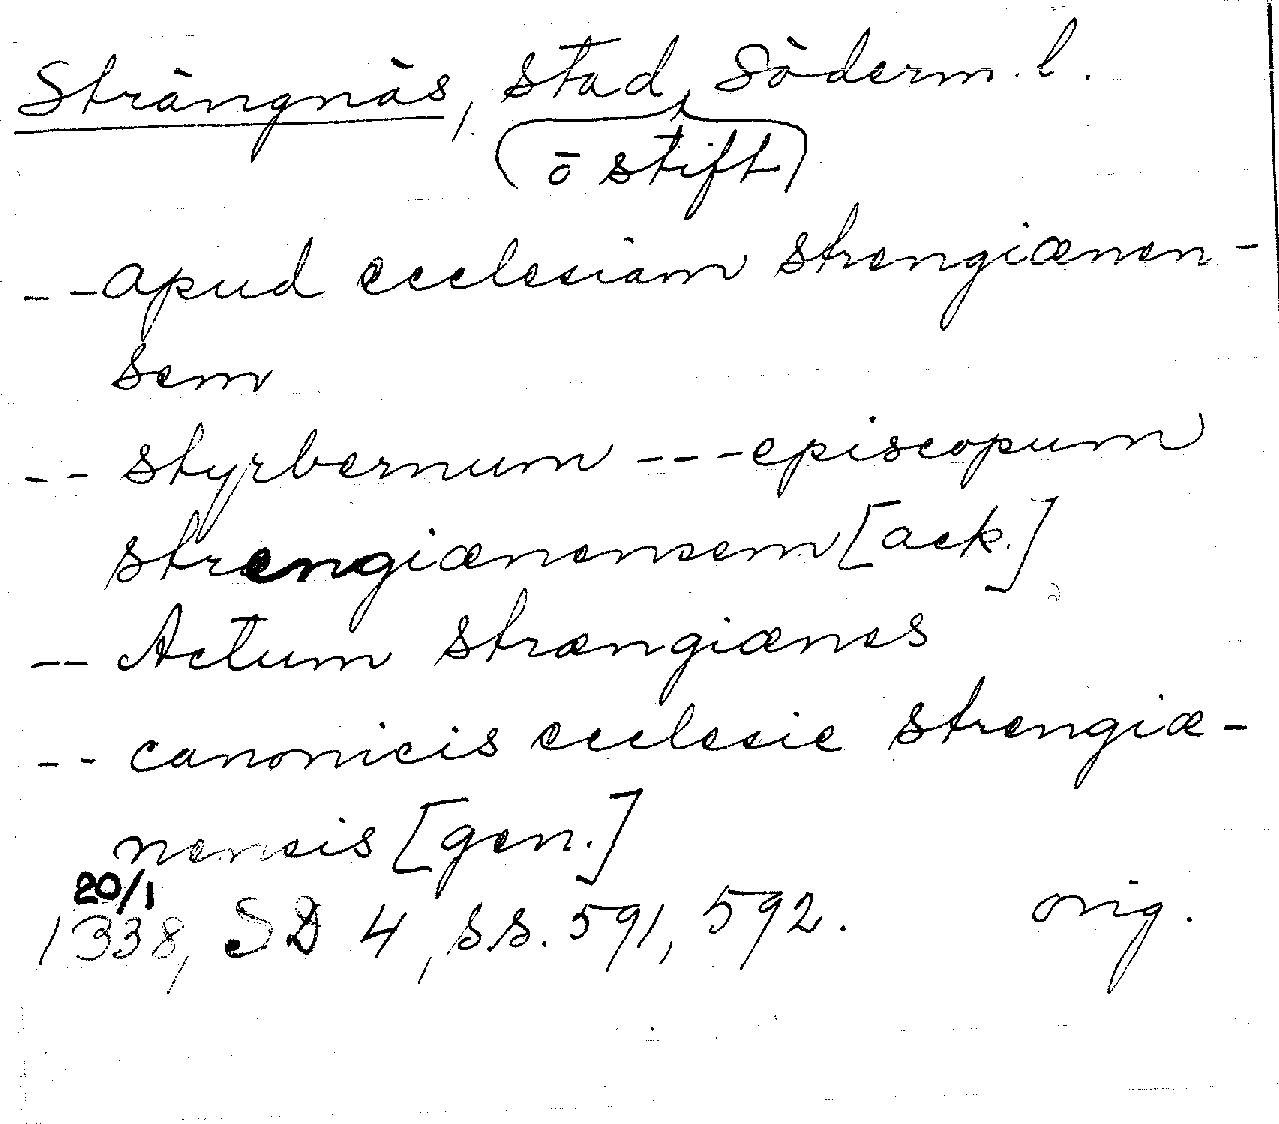 Strängnäs, stad, Söderm. l.
(ō stift)
-- apud ecclesiam strengiænen-
sem
-- styrbernum --- episcopum
strengiænensem [ack.]
-- Actum strængiænes
-- canonicis ecclesie strengiæ-
nensis [gen.]
20/1
1338, SD 4, ss. 591, 592. orig.